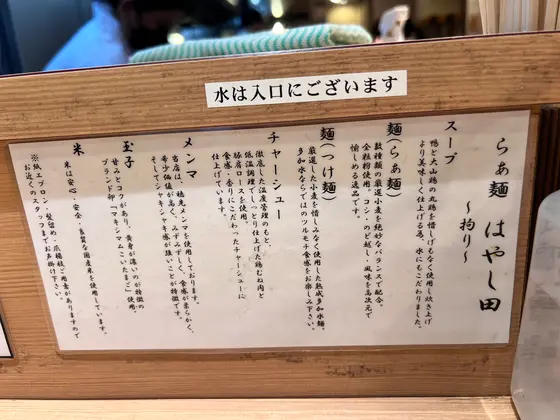 水は入口にございます
らぁ麺 はやし田
～拘り～
スープ
鴨と大山鶏の丸鶏を惜しげもなく使用し炊き上げ
より美味しく仕上げる為、水にもこだわりました。
麺(らぁ麺)
数種類の厳選小麦を絶妙なバランスで配合。
全粒粉使用、コシ、のど越し、風味を高次元で
愉しめる逸品です。
麺(つけ麺)
厳選した小麦を惜しみなく使用した熟成多加水麺。
多加水ならではのツルモチ食感をお楽しみ下さい。
チャーシュー
徹底した温度管理のもと、
低温調理でしっとり仕上げた鶏むね肉と
豚肩ロースを使用。
食感・香りにこだわったチャーシューに
仕上げています。
メンマ
当店は、穂先メンマを使用しております。
希少価値が高く、みずみずしい食感が柔らかく、
そしてシャキシャキ感が強いことが特徴です。
玉子
甘みとコクがあり、黄身が濃いのが特徴の
ブランド卵「マキシマムこいたまご」使用。
米
米は安心・安全・良質な国産米を使用しています。
※紙エプロン・髪留め・爪楊枝ご用意がありますので
お近くのスタッフまでお声掛け下さい。